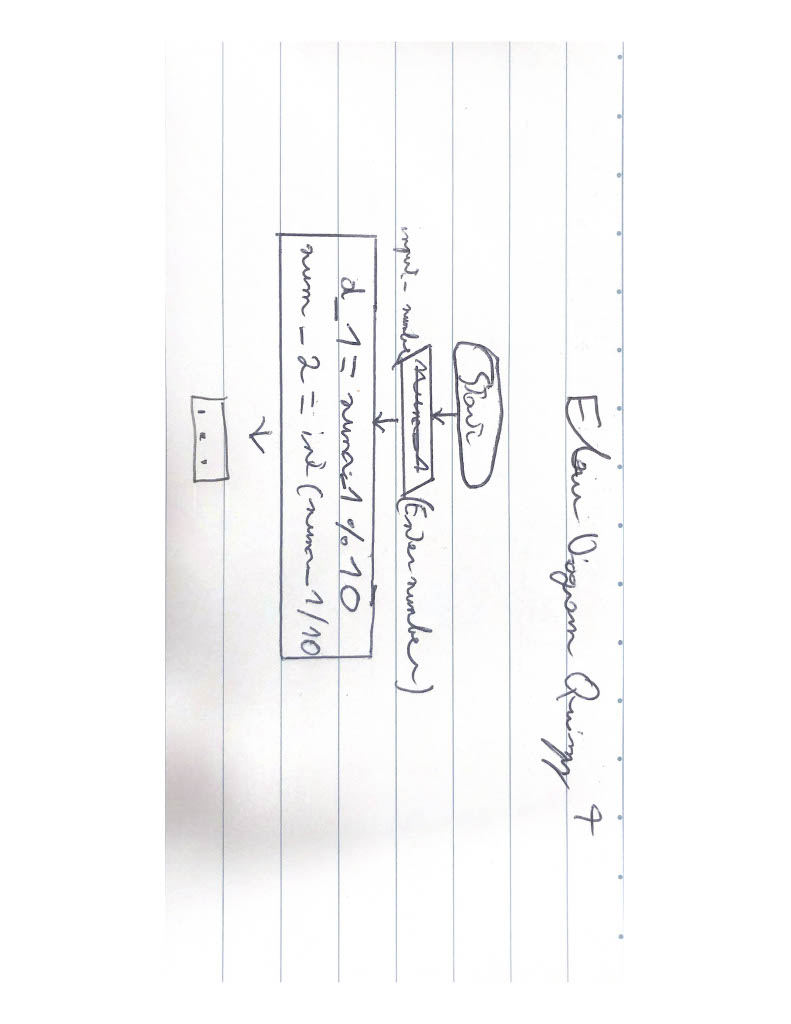 Flow Diagram Quizz 4
Start
input - number num_1 (Enter number)
d_1 = num_1 % 10
num_2 = int(num_1/10
...